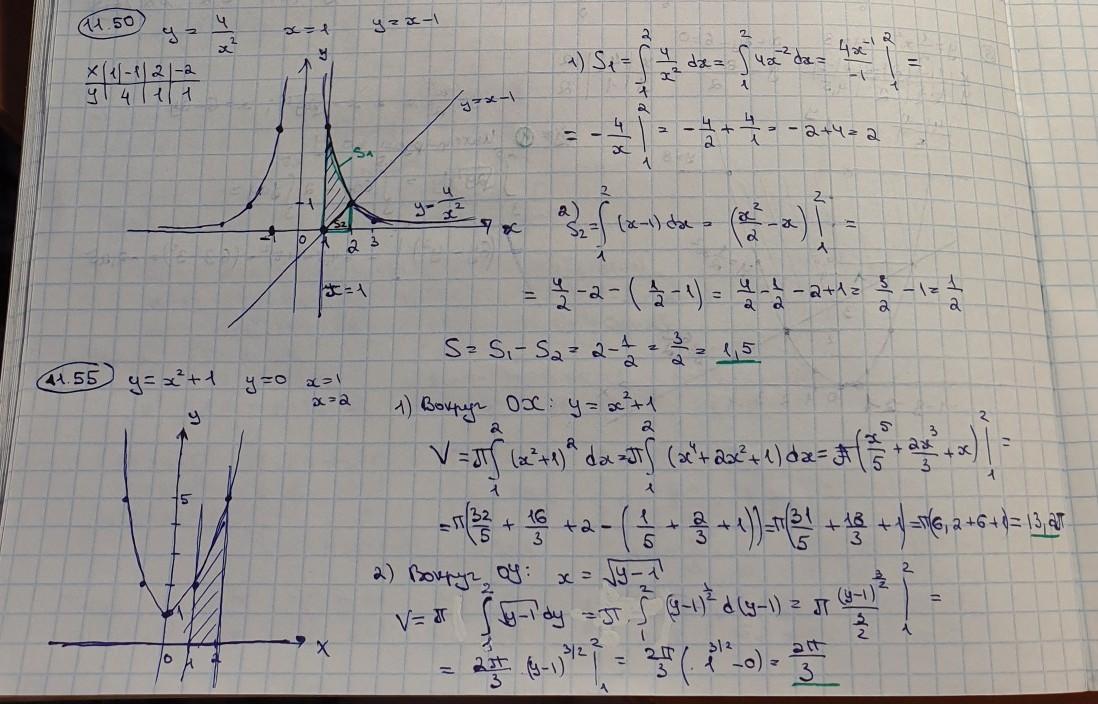 11.50 y = 4/x² x=1 y=x-1
x | 1 | -1 | 2 | -2
y | 4 | 1 | 1
y
y=x-1
S₁
1
y=4/x²
S₂
-1 0 1 2 3 x
x=1
1) S₁ = ∫₁² 4/x² dx = ∫₁² 4x⁻² dx = 4x⁻¹/-1 |₁² =
= -4/x |₁² = -4/2 + 4/1 = -2+4 = 2
2) S₂ = ∫₁² (x-1) dx = (x²/2 - x) |₁² =
= 4/2 - 2 - (1/2 - 1) = 4/2 - 1/2 - 2 + 1 = 3/2 - 1 = 1/2
S = S₁ - S₂ = 2 - 1/2 = 3/2 = 1,5
11.55 y = x²+1 y=0 x=1
x=2
y
5
1
0 1 2 x
1) Вокруг OX: y = x²+1
V = π∫₁² (x²+1)² dx = π∫₁² (x⁴+2x²+1) dx = π(x⁵/5 + 2x³/3 + x) |₁² =
= π(32/5 + 16/3 + 2 - (1/5 + 2/3 + 1)) = π(31/5 + 18/3 + 1) = π(6,2+6+1) = 13,2π
2) Вокруг OY: x = √(y-1)
V = π ∫₁² √(y-1) dy = π · ∫₁² (y-1)^(1/2) d(y-1) = π (y-1)^(3/2) / (3/2) |₁² =
= 2π/3 · (y-1)^(3/2) |₁² = 2π/3 (1^(3/2) - 0) = 2π/3